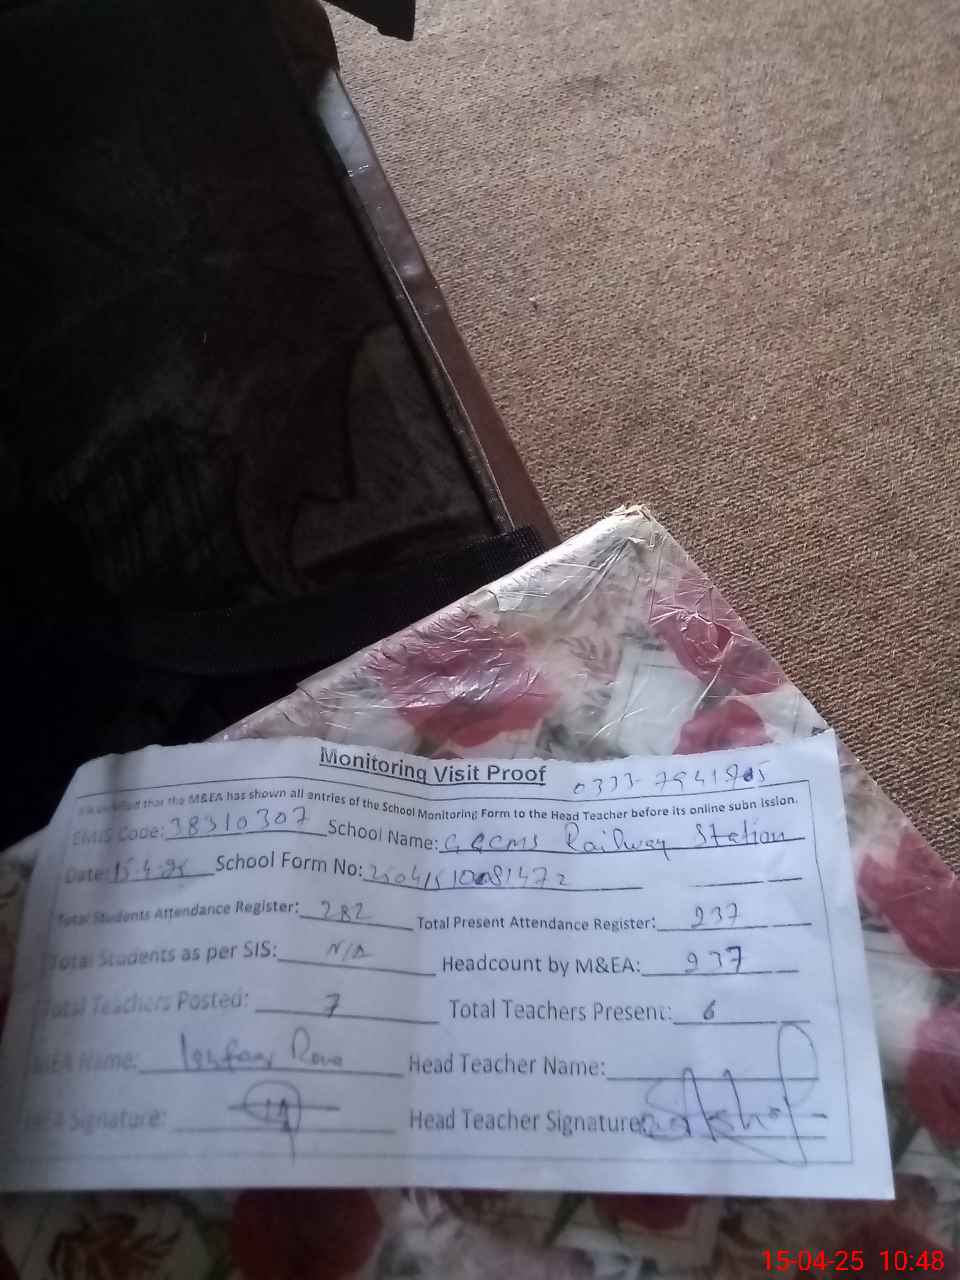 Monitoring Visit Proof
0333-7941505
that the M&EA has shown all entries of the School Monitoring Form to the Head Teacher before its online subn ission.
EMIS Code: 38310307 School Name: GGCMS Railway Station
Date: 15-4-25 School Form No:
Total Students Attendance Register: 282 Total Present Attendance Register: 237
Total Students as per SIS: N/A Headcount by M&EA: 237
Total Teachers Posted: 7 Total Teachers Present: 6
MEA Name: Head Teacher Name:
Signature: Head Teacher Signature
15-04-25 10:48